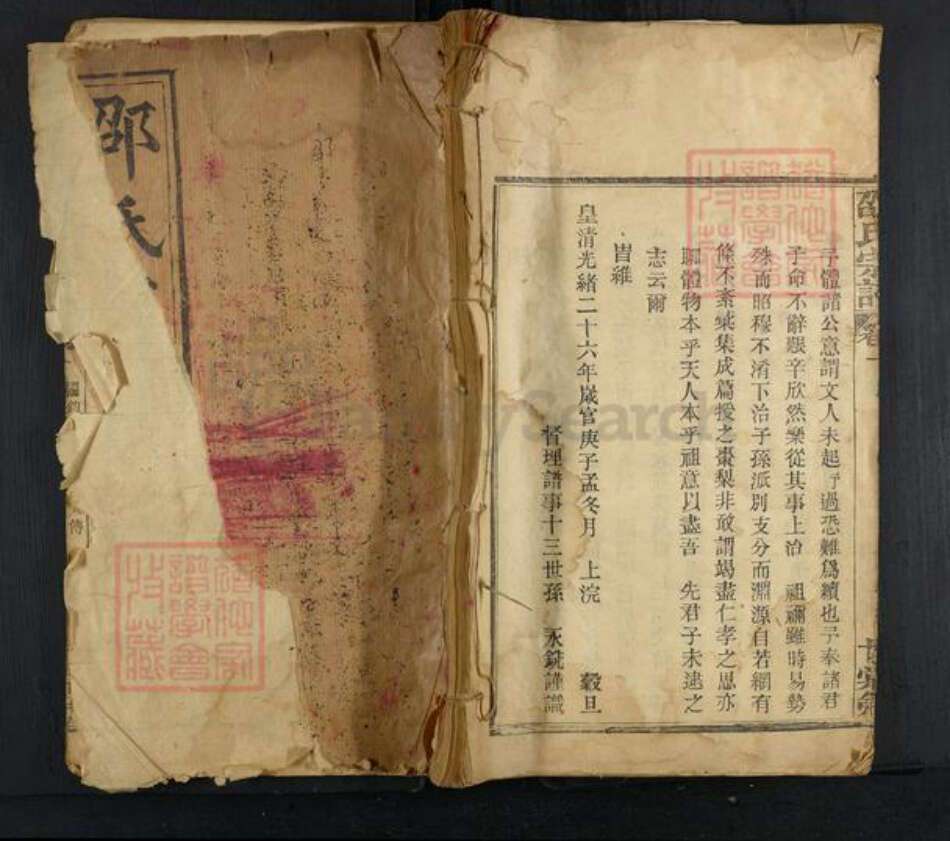 邵氏宗譜
卷一
予體諸公意謂文人未起予過恐難爲續也予奉諸君
子命不辭艱辛欣然樂從其事上治 祖禰雖時易勢
殊而昭穆不淆下治子孫派別支分而淵源自若綱有
條不紊彙集成篇授之棗梨非敢謂竭盡仁孝之思亦
聊體物本乎天人本乎祖意以盡吾 先君子未逮之
志云爾
旹維
皇清光緒二十六年歲官庚子孟冬月 上浣 穀旦
督理譜事十三世孫 永銑謹識
邵氏
傳
FamilySearch